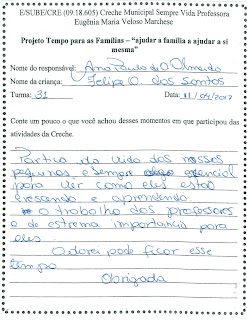 E/SUBE/CRE (09.18.605) Creche Municipal Sempre Vida Professora
Eugênia Maria Veloso Marchese
Projeto Tempo para as Famílias – "ajudar a família a ajudar a si
mesma"
Nome do responsável: Ana Paula de O. Olmeida
Nome da criança: Felipe O. dos Santos
Turma: 31 Data: 11/04/2017
Conte um pouco o que você achou desses momentos em que participou das
atividades da Creche.
Partica da vida dos nossos
pequenos e sempre esencial
para ver como eles estão
crescendo e aprendendo.
o trabalho dos professores
e de estrema importancia para
eles.
Odorei pode ficar esse
tempo
Obrigada